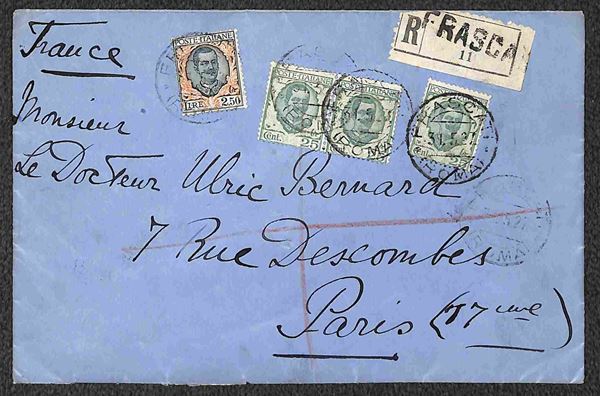 France
POSTE ITALIANE
LIRE 2.50
POSTE ITALIANE
Cent. 25
POSTE ITALIANE
25
POSTE ITALIANE
Cent. 25
FRASCATI
(ROMA)
R FRASCA
11
Monsieur
Le Docteur Ulric Bernard
7 Rue Descombes
Paris (17eme)